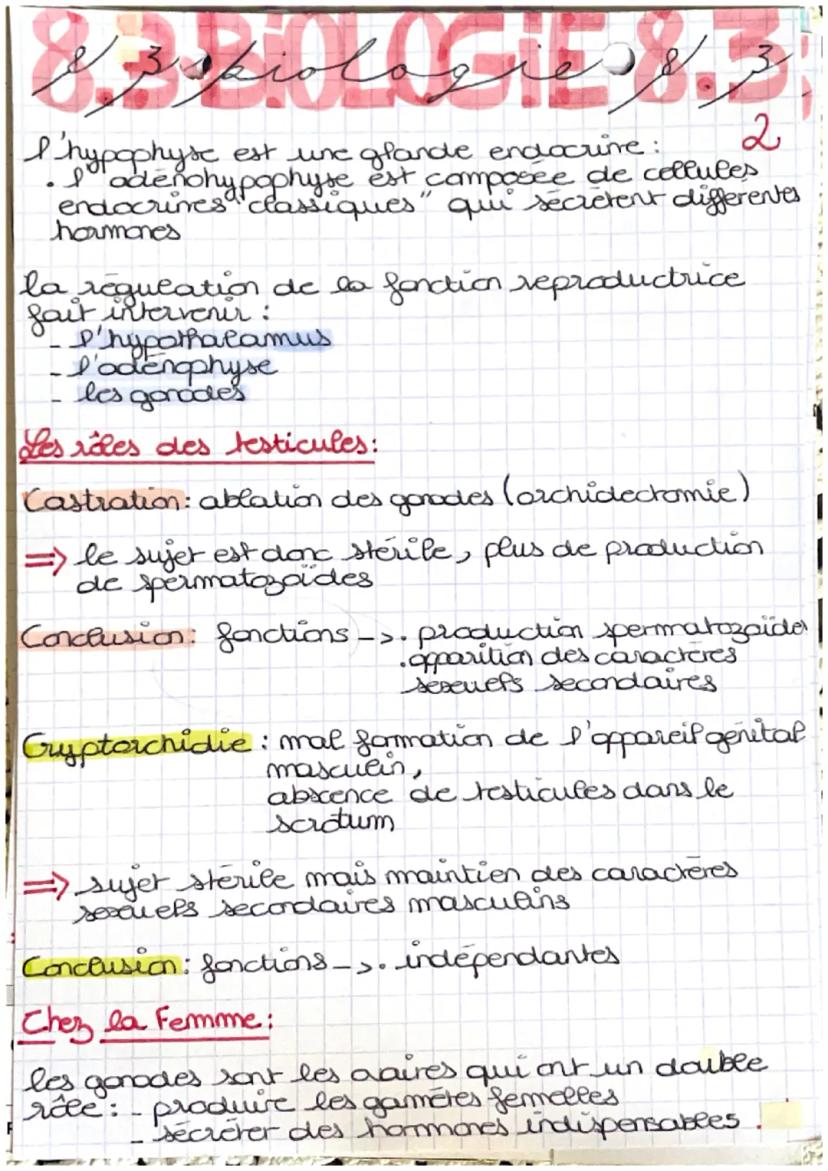 8.3 BIOLOGIE 8.3
8.3 biologie 8.3
2
l'hypophyse est une glande endocrine :
. l'adénohypophyse est composée de cellules
endocrines "classiques" qui sécrètent différentes
hormones
la régulation de la fonction reproductrice
fait intervenir :
- l'hypothalamus
- l'adénophyse
- les gonades
Les rôles des testicules:
Castration: ablation des gonades (orchidectomie)
=> le sujet est donc stérile, plus de production
de spermatozoïdes
Conclusion: fonctions -> . production spermatozoïdes
. apparition des caractères
sexuels secondaires
Cryptorchidie : mal formation de l'appareil génital
masculin,
abscence de testicules dans le
scrotum
=> sujet stérile mais maintien des caractères
sexuels secondaires masculins
Conclusion: fonctions -> . indépendantes
Chez la Femme:
les gonades sont les ovaires qui ont un double
rôle : - produire les gamètes femelles
- sécréter des hormones indispensables.